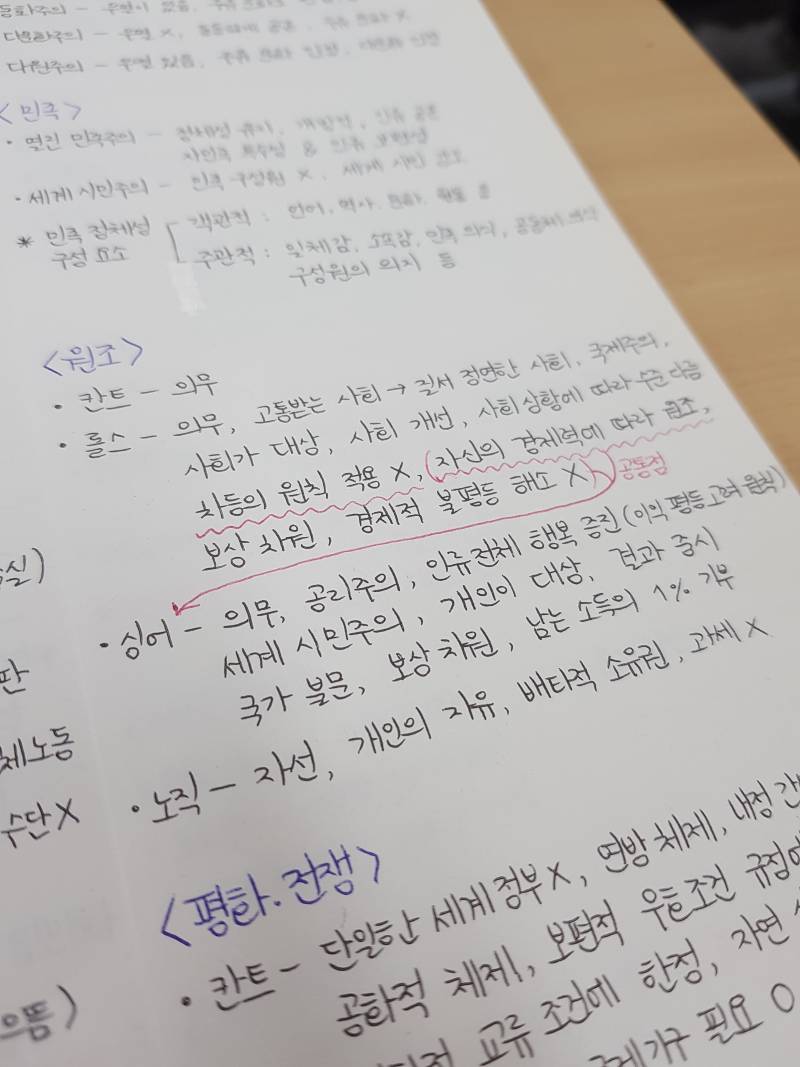 동화주의 -
다문화주의 - 우열 X,
다원주의 - 우열 있음, 주류 문화 인정,
<민족>
• 열린 민족주의 - 정체성 유지, 개방적, 인류 공존
자민족 특수성 & 인류 보편성
• 세계 시민주의 - 민족 구성원 X, 세계 시민 강조
* 민족 정체성 구성 요소
객관적 : 언어, 역사, 문화, 혈통 등
주관적 : 일체감, 소속감, 민족 의식, 공동체 의식
구성원의 의지 등
<원조>
• 칸트 - 의무
• 롤스 - 의무, 고통받는 사회 → 질서 정연한 사회, 국제주의,
사회가 대상, 사회 개선, 사회 상황에 따라 수준 다름
차등의 원칙 적용 X, (자신의 경제력에 따라 원조,
보상 차원, 경제적 불평등 해소 X) 공통점
• 싱어 - 의무, 공리주의, 인류 전체 행복 증진 (이익 평등 고려 원칙)
세계 시민주의, 개인이 대상, 결과 중시
국가 불문, 보상 차원, 남는 소득의 1% 기부
• 노직 - 자선, 개인의 자유, 배타적 소유권, 과세 X
<평화·전쟁>
• 칸트 - 단일한 세계 정부 X, 연방 체제, 내정 간
공화적 체제, 보편적 우호조건 규정에
교류 조건에 한정, 자연
국제기구 필요 O
실)
판
체노동
수단 X
으뜸)